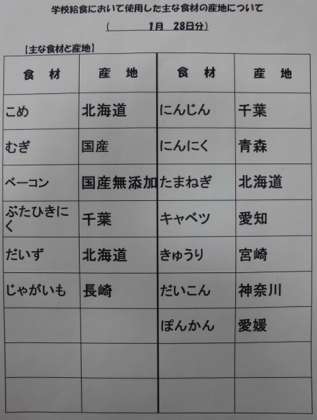 学校給食において使用した主な食材の産地について
( 1月 28日分)
【主な食材と産地】
食 材 産 地 食 材 産 地
こめ 北海道 にんじん 千葉
むぎ 国産 にんにく 青森
ベーコン 国産無添加 たまねぎ 北海道
ぶたひきにく 千葉 キャベツ 愛知
だいず 北海道 きゅうり 宮崎
じゃがいも 長崎 だいこん 神奈川
ぽんかん 愛媛